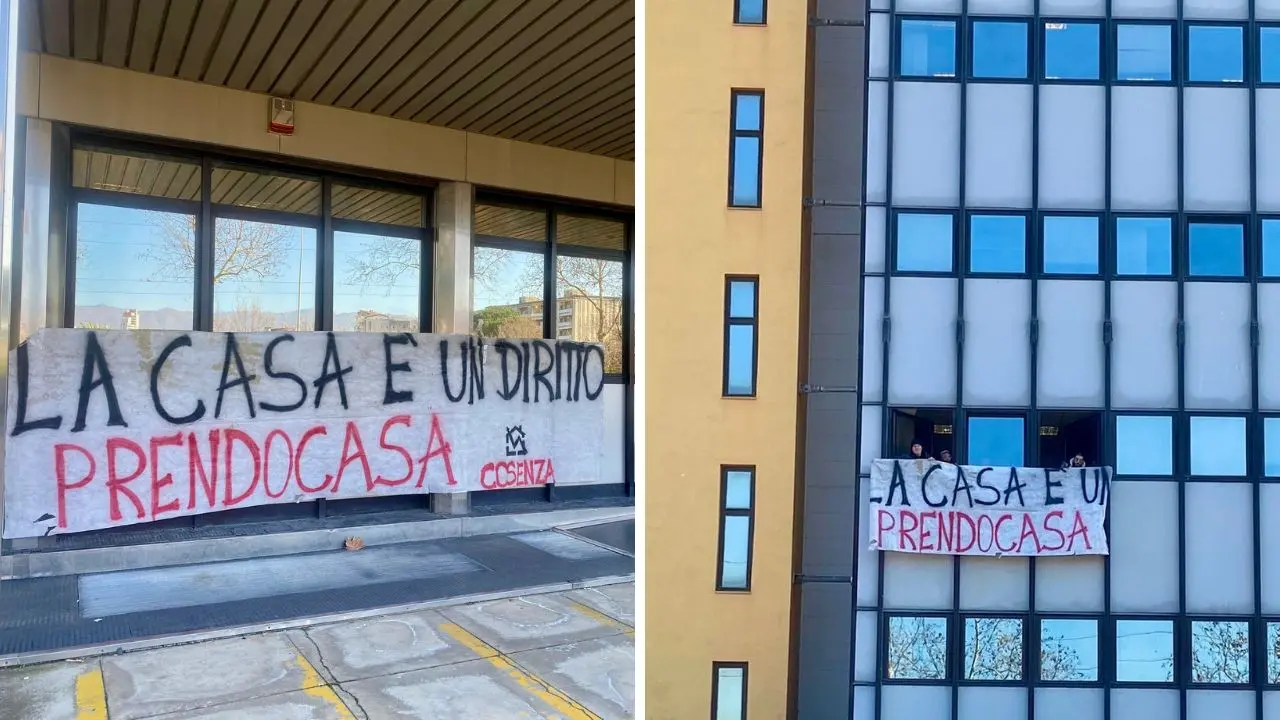 LA CASA È UN DIRITTO
PRENDOCASA
COSENZA
LA CASA È UN
PRENDOCASA